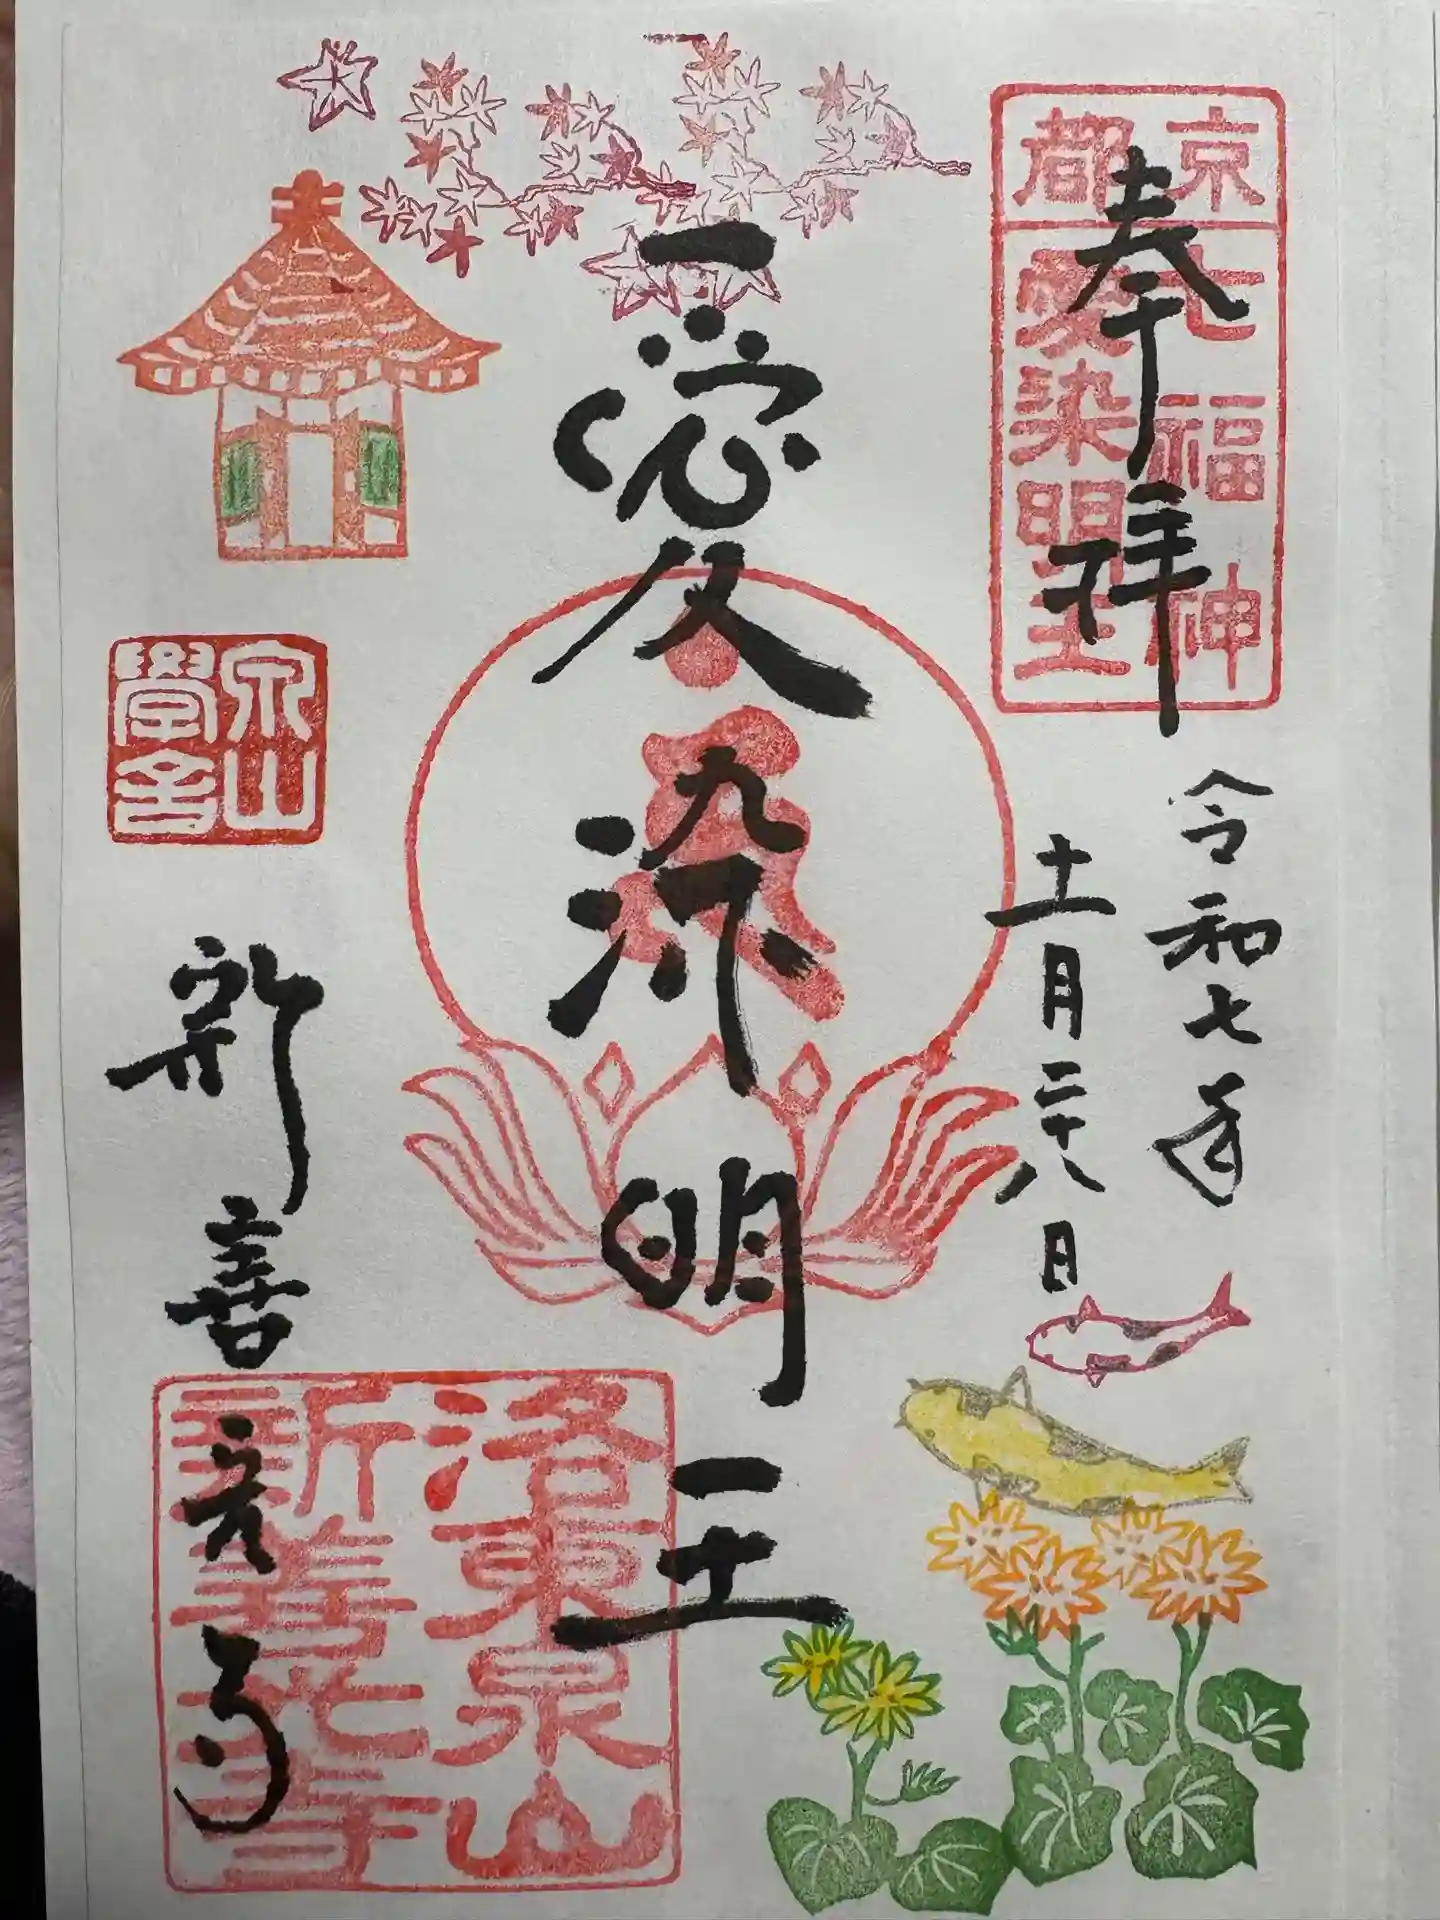 京都
七福神
愛染明王
奉拝
令和七年
十一月二十八日
愛染明王
泉山
學舎
新善光寺
洛東泉山
新善光寺